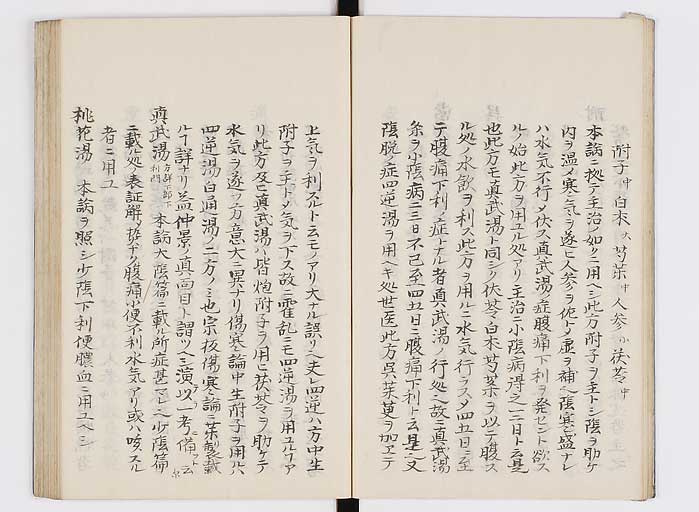 附子中 白朮大 芍薬中 人参小 茯苓中
本論ニ拠テ主治ノ如クニ用ヘシ此方附子ヲ主トシ陰ヲ助ケ
内ヲ温メ寒気ヲ逐ヒ人参ヲ佐トメ虚ヲ補ヘ陰寒盛ナレ
ハ水気不行メ伏ス真武湯ノ症腹痛下利ヲ発セント欲ス
ルノ始此方ヲ用ユル処アリ主治ニ小陰病得之一二日ト云是
也此方モ真武湯ト同シク伏苓白朮芍薬ヲ以テ腹ス
ル処ノ水飲ヲ利ス此方ヲ用ルニ水気行ラスメ四五日ニ至
テ腹痛下利ノ症トナル者真武湯ノ行処ヘ故ニ真武湯
条ヲ小陰病二三日不已至四五日ニ腹痛下利ト云是ニ又
陰脱ノ症四逆湯ヲ用ヘキ処世医此方呉茱萸ヲ加エテ
上気ヲ利スルト云モノアリ大ナル誤リヘ夫レ四逆ハ方中生
附子ヲ主トメ気ヲ下ス故ニ霍乱ニモ四逆湯ヲ用ユルフア
リ此方及ヒ真武湯ハ皆炮附子ヲ用ヒ茯苓ヲ助ケテ
水気ヲ逐フ方意大ニ異ナリ傷寒論中生附子ヲ用ルハ
四逆湯白通湯ノ二方ノミ也宗板傷寒論ニ薬製載
ルフ詳ナリ益仲景ノ真面目ト謂ツヘシ演以一考ノ備
真武湯 本論大陰篇ニ載ル所症甚マレヘ少陰篇
ニ載ル処表証解 腹痛小便不利水気アリ或ハ咳スル
者ニ用ユ
桃花湯 本論ヲ照シ少陰下利便膿血ニ用ユヘシ